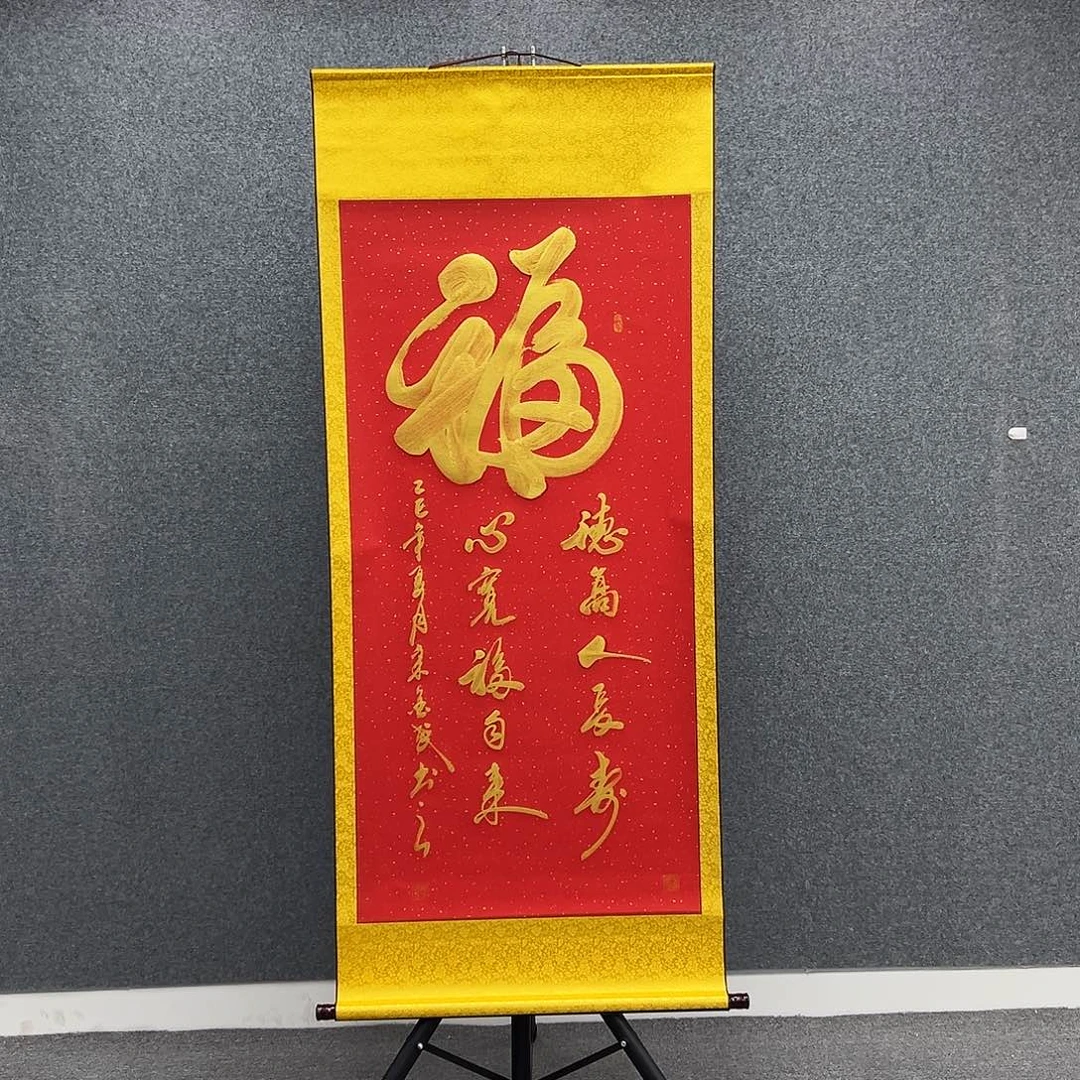 福
德高人长寿
心宽福自来
乙巳年夏月宋金茂书